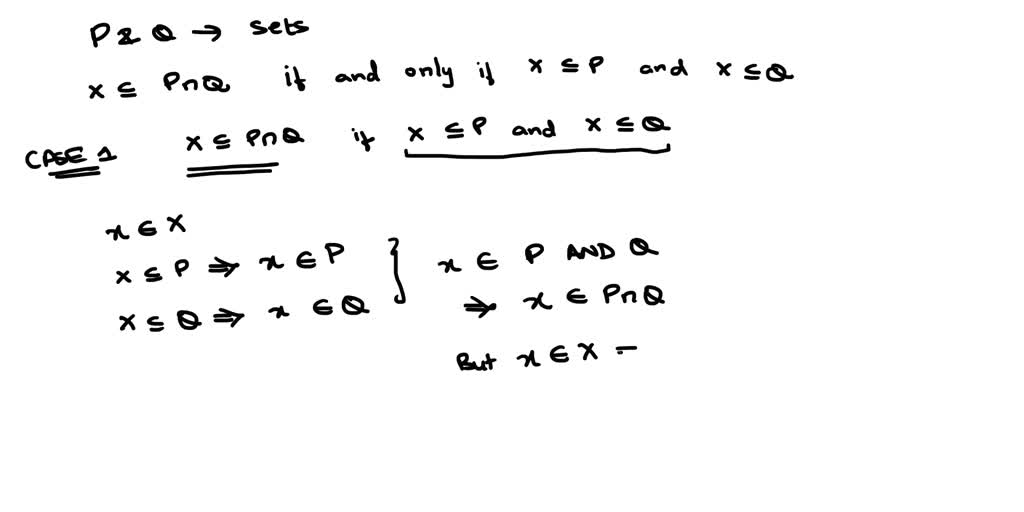 P & Q → sets
X ⊆ P∩Q if and only if X ⊆ P and X ⊆ Q
CASE 1 X ⊆ P∩Q if X ⊆ P and X ⊆ Q
x ∈ X
X ⊆ P ⇒ x ∈ P } x ∈ P AND Q
X ⊆ Q ⇒ x ∈ Q ⇒ x ∈ P∩Q
But x ∈ X